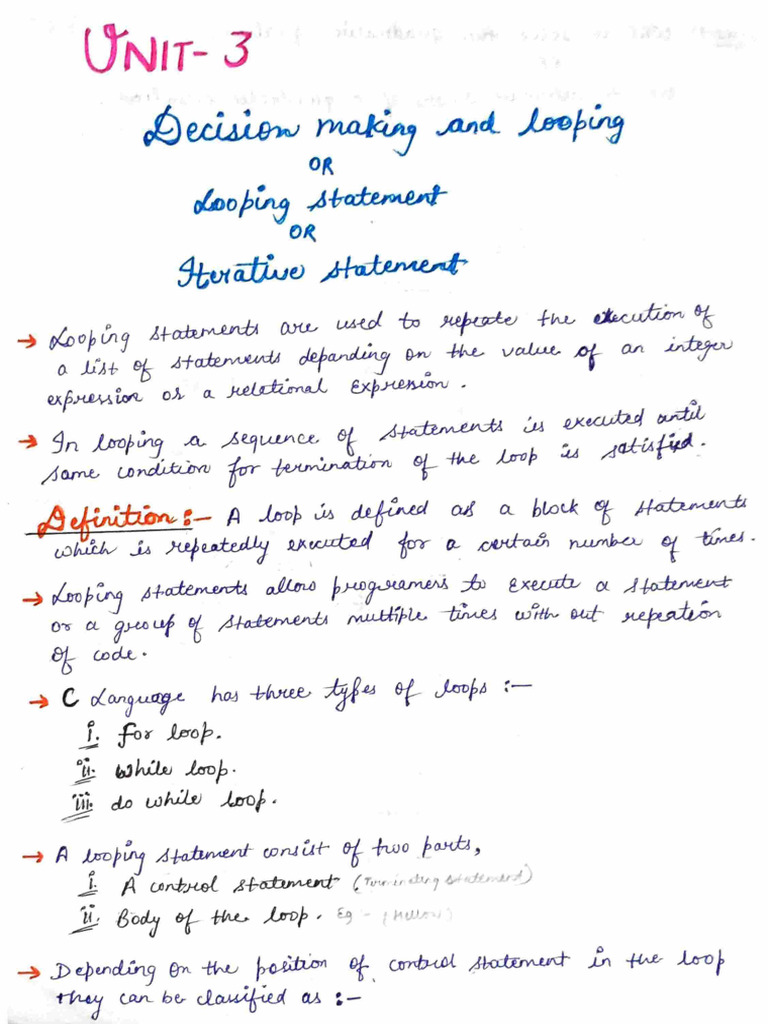 UNIT-3
Decision making and looping
OR
Looping statement
OR
Iterative statement
→ Looping statements are used to repeate the execution of
a list of statements depanding on the value of an integer
expression or a relational Expression.
→ In looping a sequence of statements is executed until
same condition for termination of the loop is satisfied.
Definition:- A loop is defined as a block of statements
which is repeatedly executed for a certain number of times.
→ Looping statements allow programers to execute a statement
or a group of statements multiple times with out repeation
of code.
→ C Language has three types of loops :-
i. for loop.
ii. while loop.
iii. do while loop.
→ A looping statement consist of two parts,
i. A control statement (Terminating statement)
ii. Body of the loop. Eg -
→ Depending on the position of control statement in the loop
they can be classified as :-